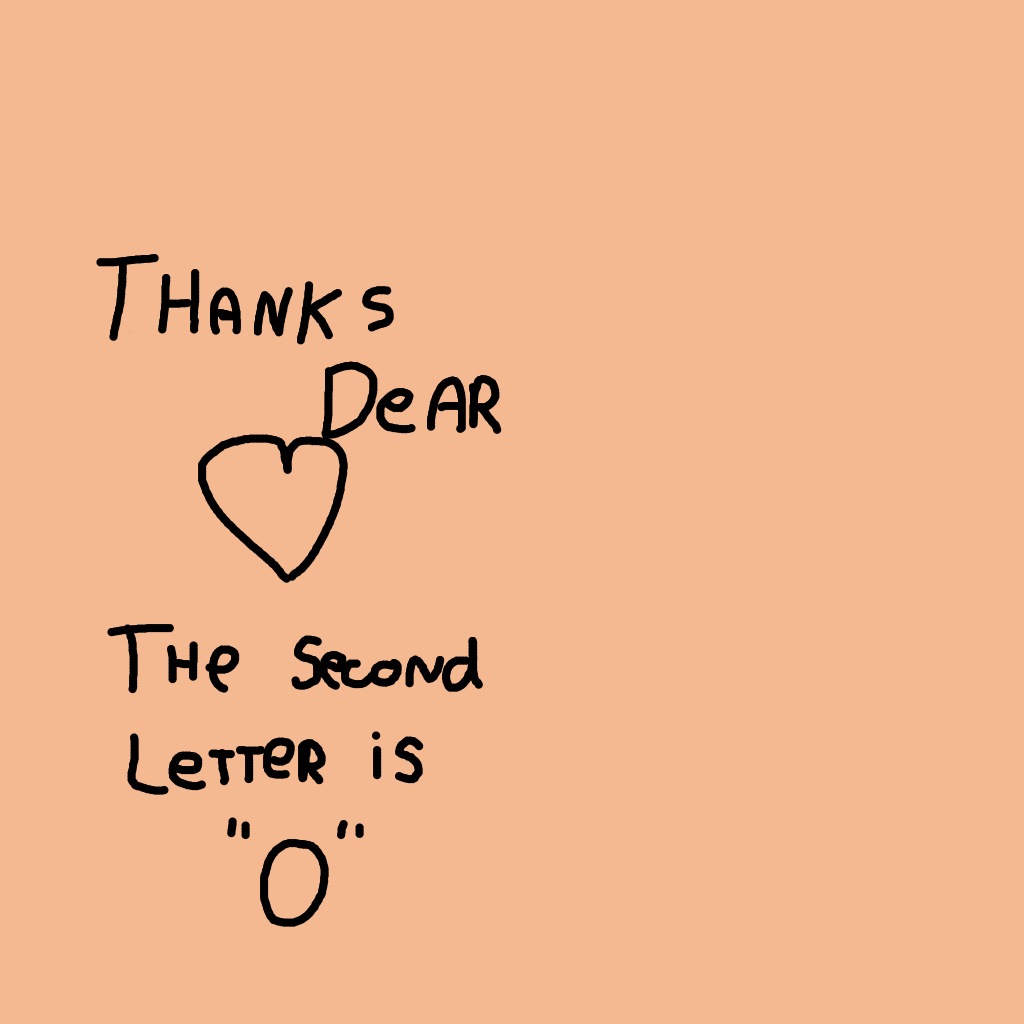 THANKS
DeAR
THe Second
LeTTeR is
"O"